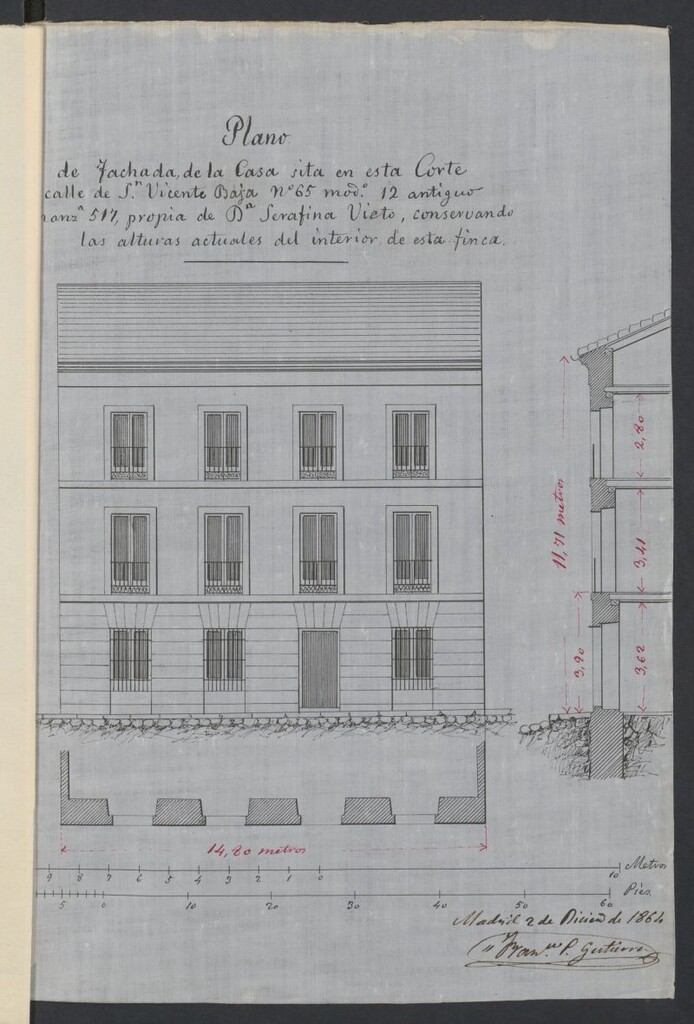 Plano
de Fachada, de la Casa sita en esta Corte
calle de S.n Vicente Baja Nº 65 modº. 12 antiguo
manzª 517, propia de Dª Serafina Vieto, conservando
las alturas actuales del interior de esta finca.
2,80
11,71 metros
3,41
3,90
3,62
14,20 metros
9 8 7 6 5 4 3 2 1 0 10 Metros
5 0 10 20 30 40 50 60 Pies
Madrid 2 de Diciem de 1864
Fran.co P. Gutierrez